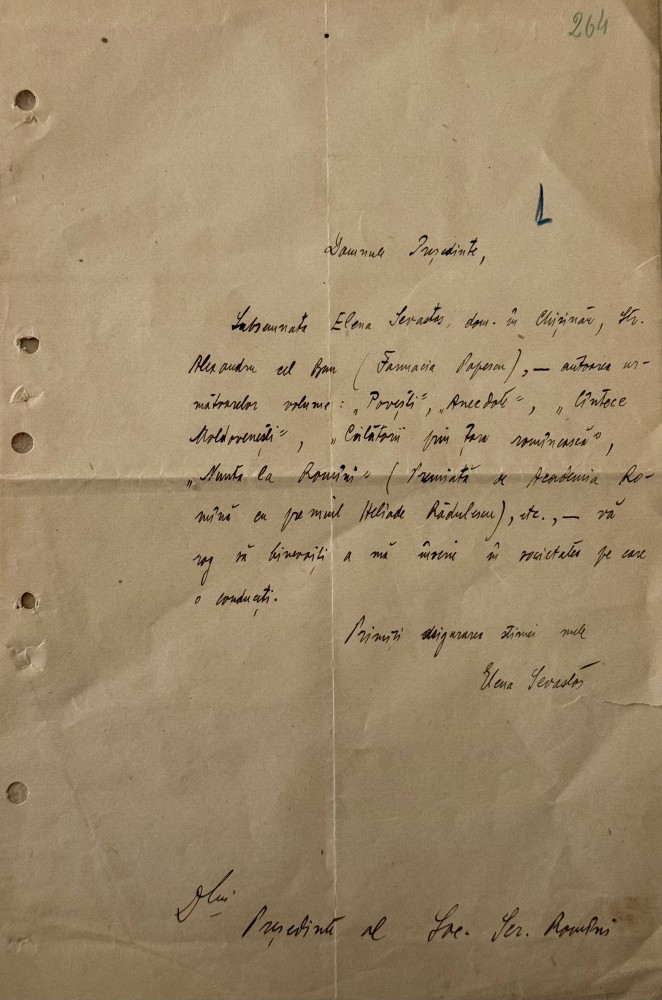 264
Domnule Președinte,
Subsemnata Elena Sevastos, dom. în Chișinău, Str.
Alexandru cel Bun (Farmacia Popescu), — autoarea ur-
mătoarelor volume: „Povești", „Anecdote", „Cîntece
Moldovenești", „Călătorii prin țara românească",
„Nunta la Români" (Premiată de Academia Ro-
mînă cu premiul Heliade Rădulescu), etc., — vă
rog să binevoiți a mă înscrie în societatea pe care
o conduceți.
Primiți asigurarea stimei mele
Elena Sevastos
Dlui
Președinte al Soc. Scr. Români